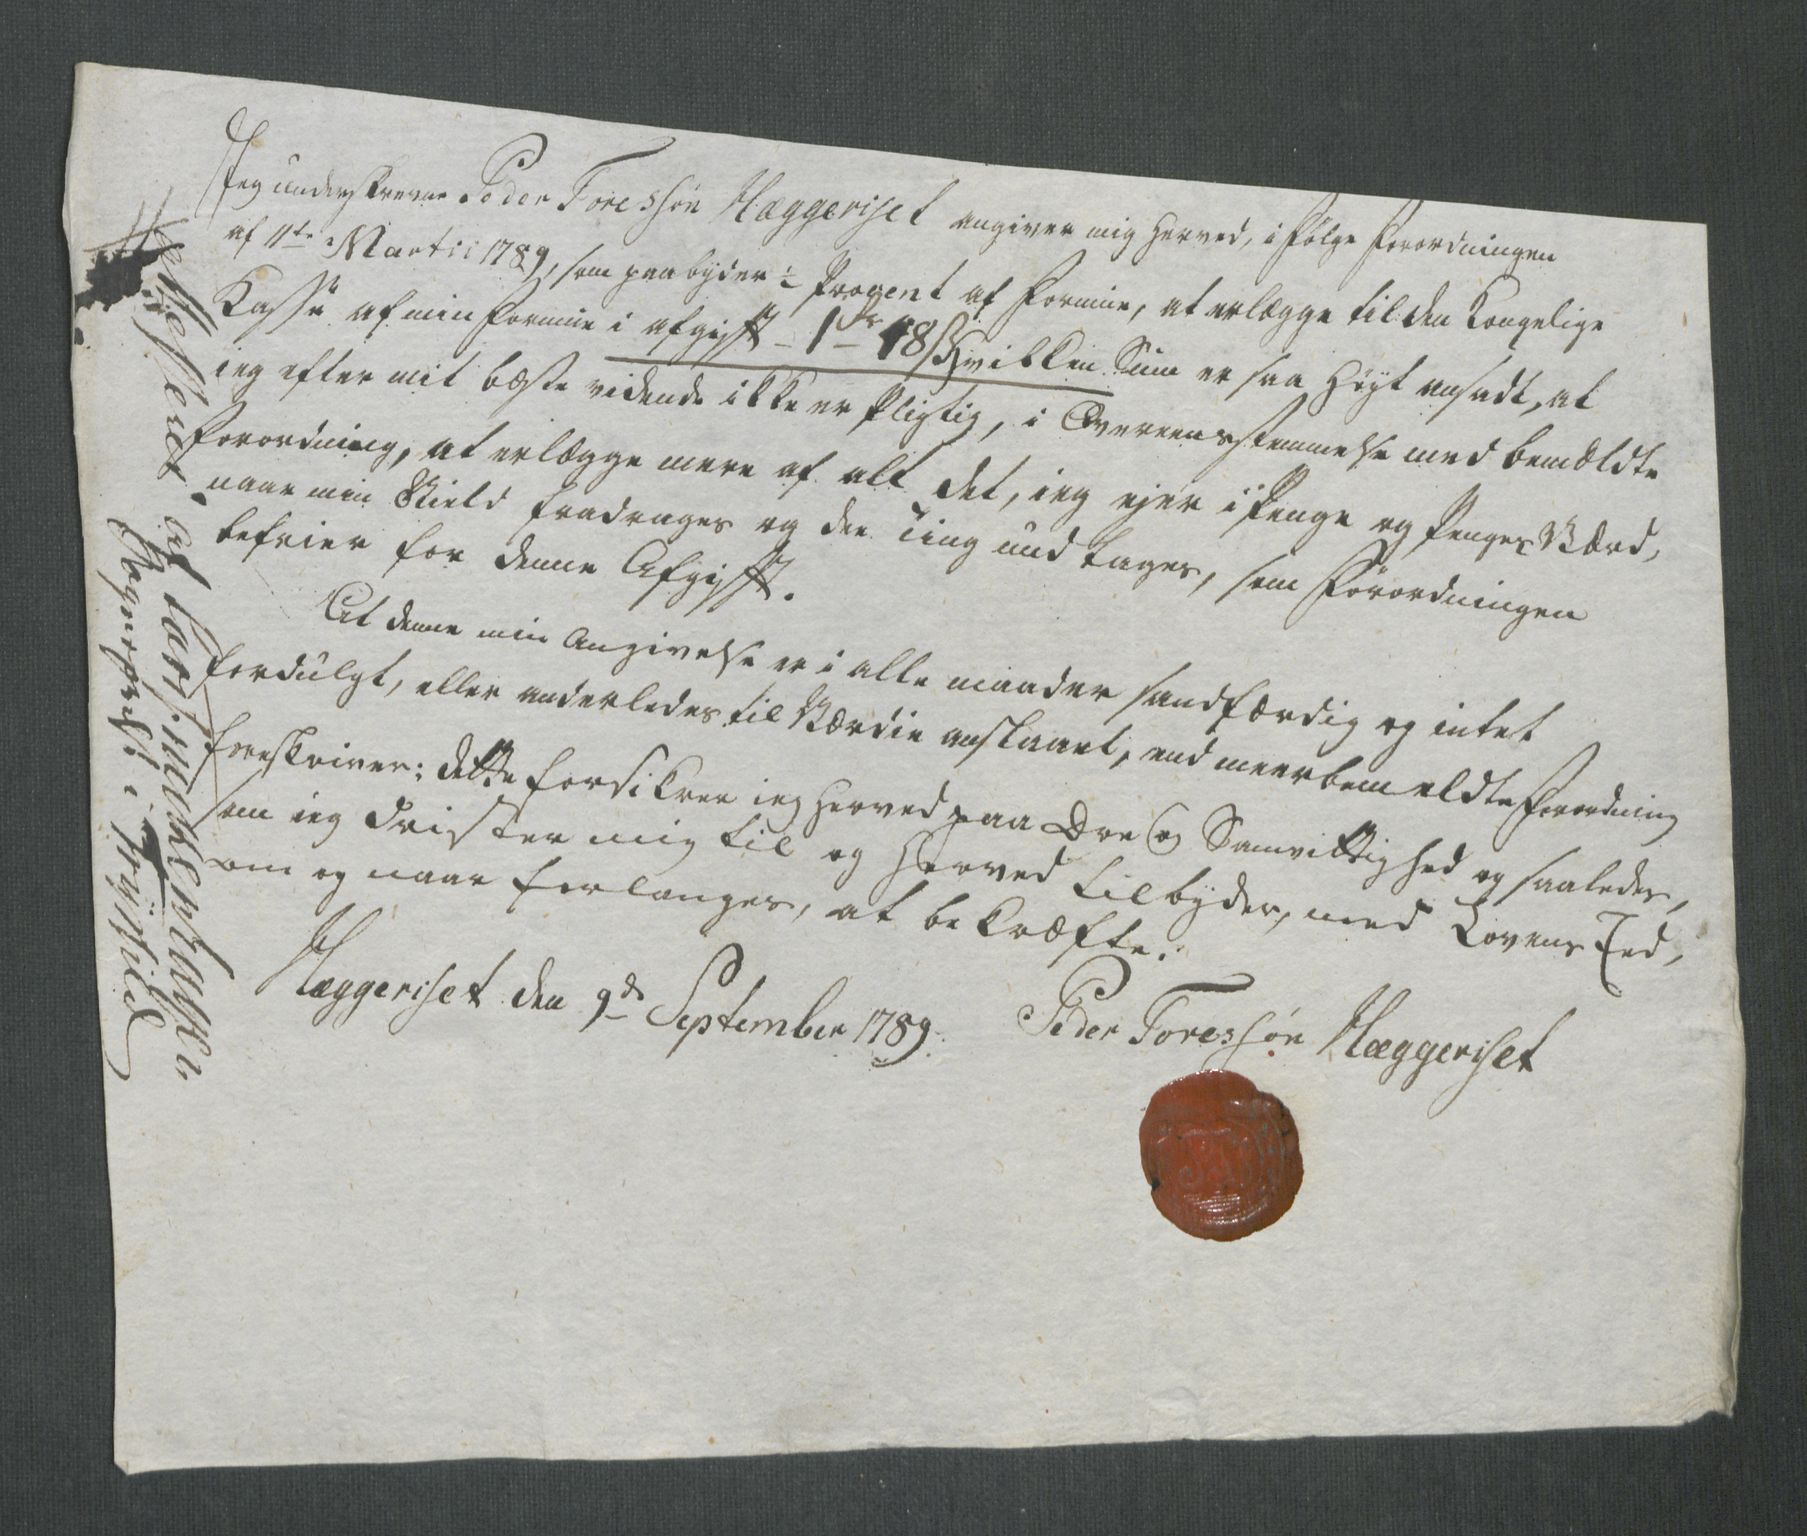 Jeg underskrevne Peder Foressøn Hæggeriset angiver mig herved, i følge Forordningen
af 11te Martii 1789, som paabyder ½ Procent af Formue, at erlægge til den Kongelige
Kasse af min Formue i afgift - 1 ds 18 s hvilken Sum er saa høyt ansadt, at
ieg efter mit bæste vidende ikke er pligtig, i Overeensstemmelse med bemældte
Forordning, at erlægge mere af alt det, ieg ejer i Penge og Penges Værd,
naar min Gield fradrages og dee Ting undtages, som Forordningen
befrier for denne Afgift.
At denne min Angivelse er i alle maader sandfærdig og intet
fordulgt, eller anderledes til Værdie anslaaet, end meerbemeldte Forordning
foreskriver; dette forsikrer ieg herved paa Ære og Samvittighed og saaledes,
som ieg drister mig til og herved tilbyder, med Lovens Eed,
om og naar forlanges, at bekræfte.
Hæggeriset den 9de September 1789. Peder Foressøn Hæggeriset
af Lars
i Trysild